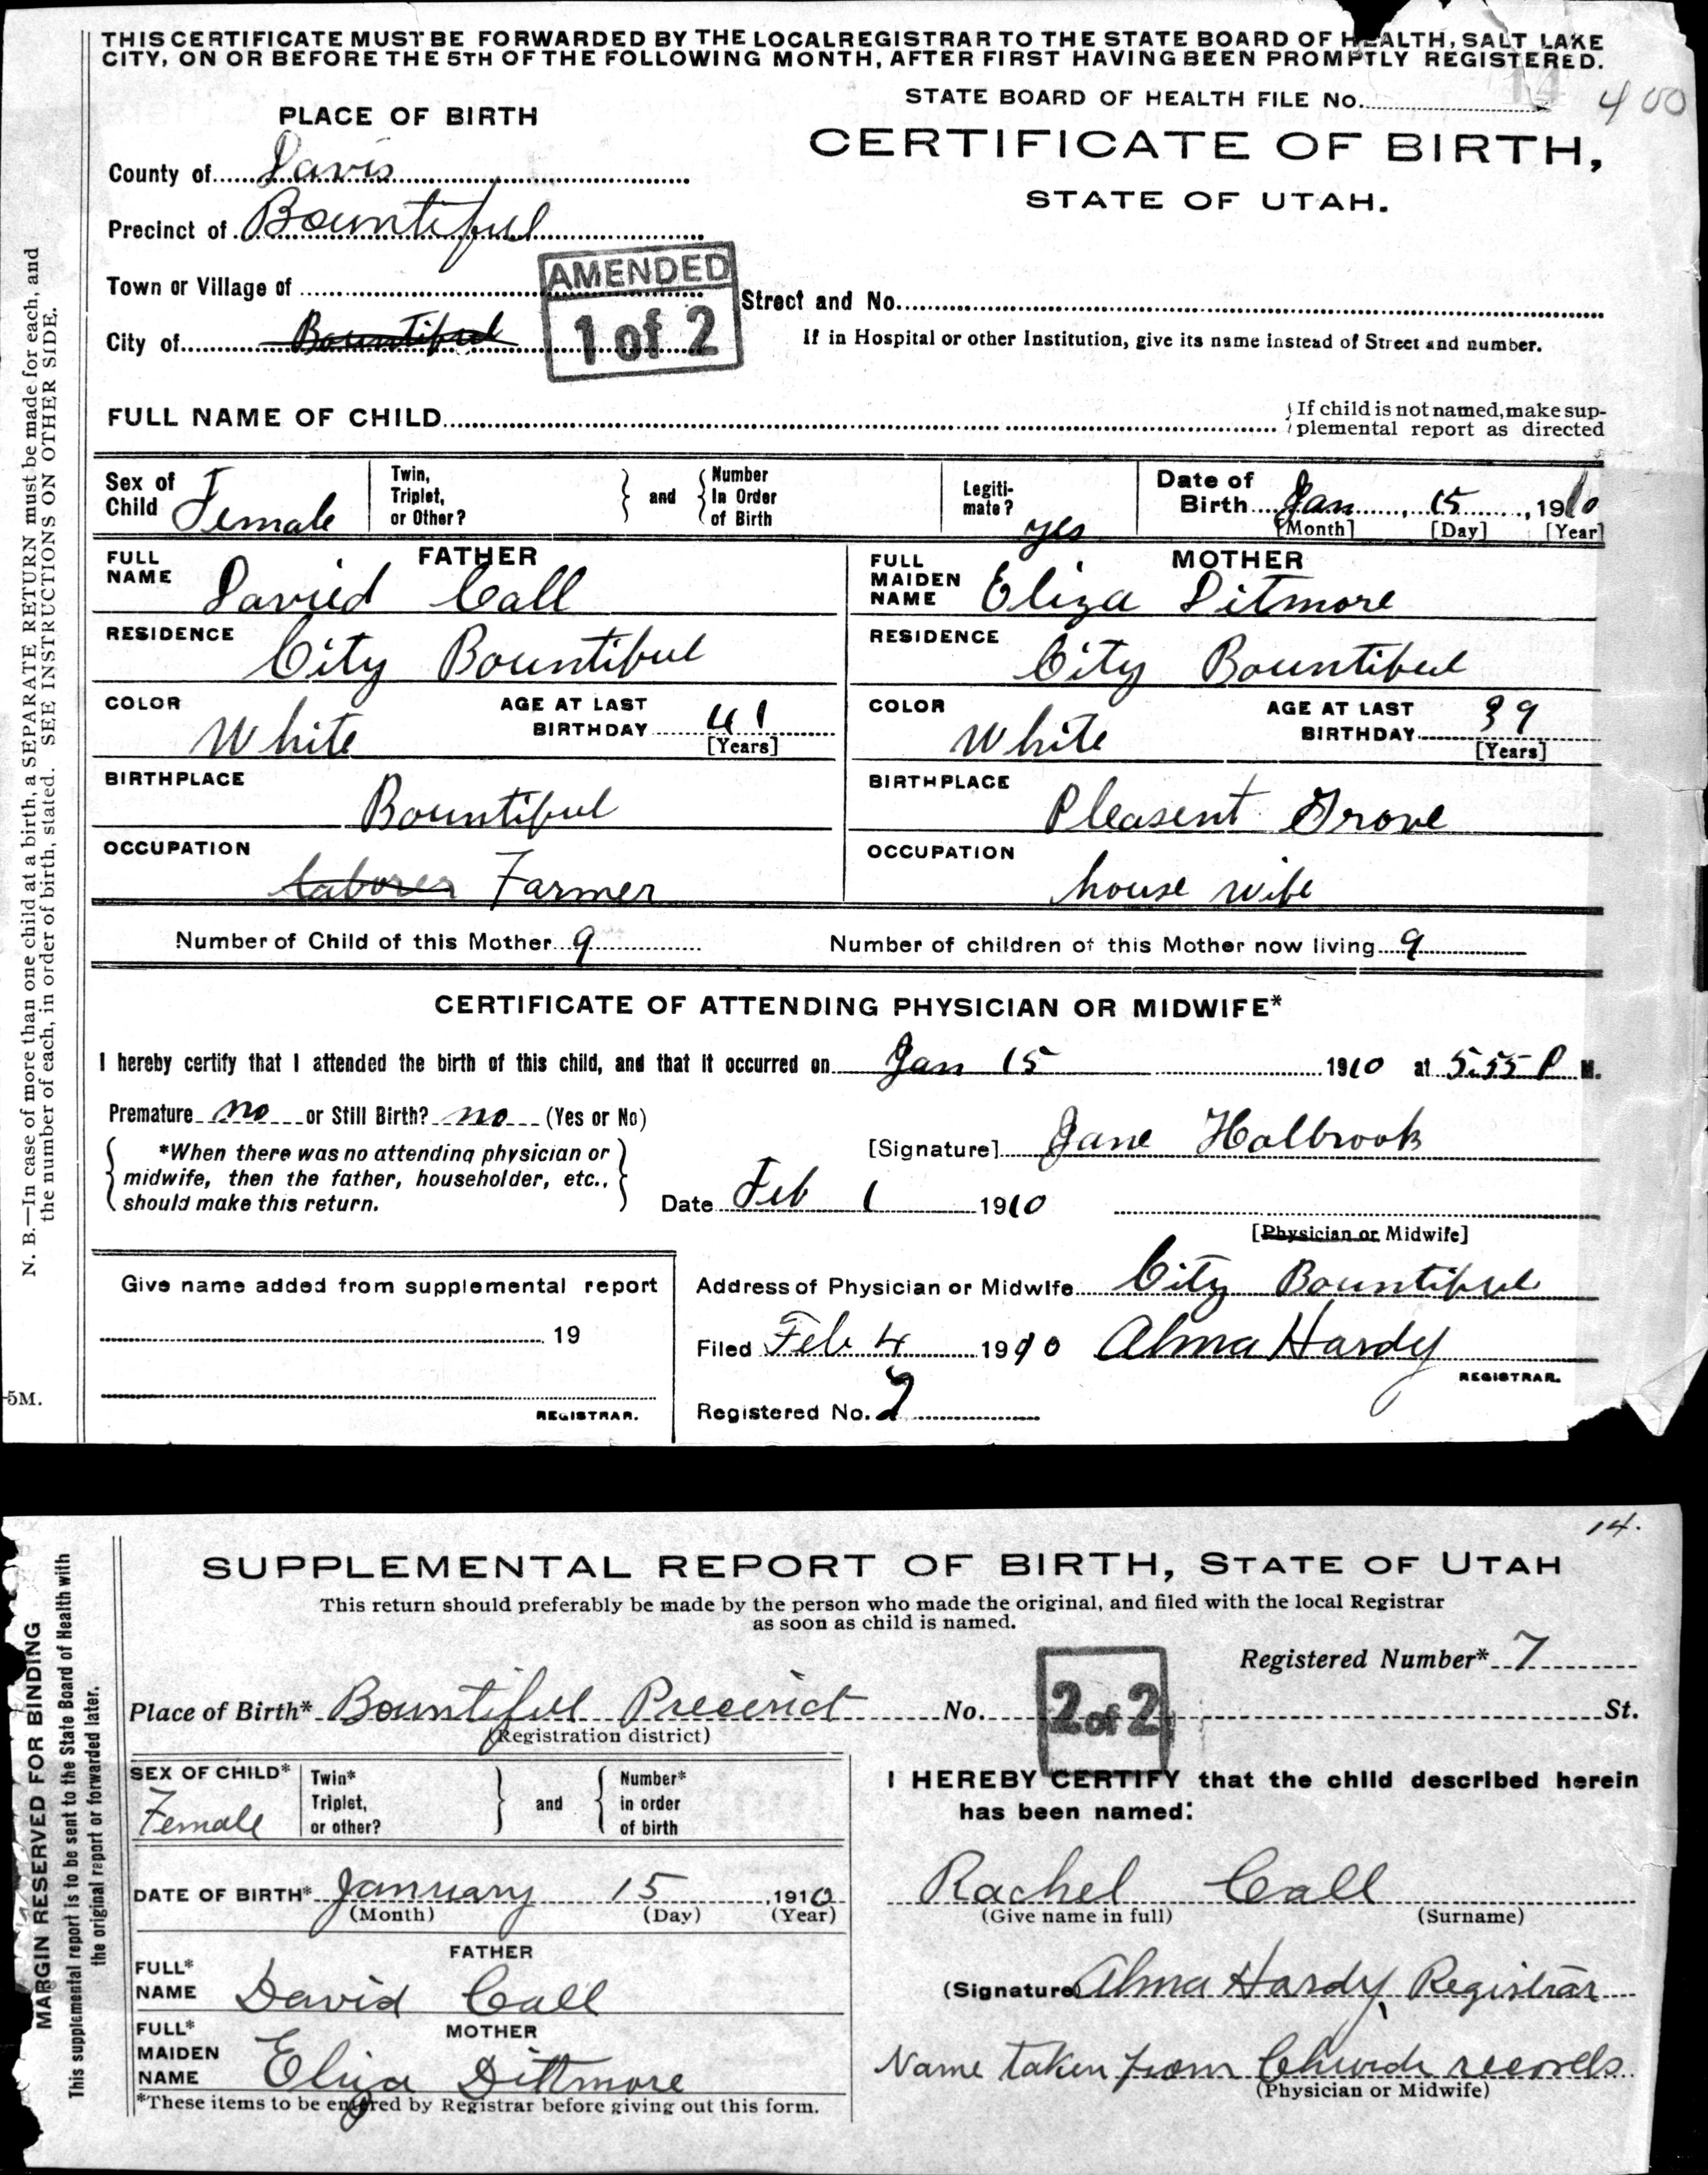 THIS CERTIFICATE MUST BE FORWARDED BY THE LOCAL REGISTRAR TO THE STATE BOARD OF HEALTH, SALT LAKE
CITY, ON OR BEFORE THE 5TH OF THE FOLLOWING MONTH, AFTER FIRST HAVING BEEN PROMPTLY REGISTERED.
STATE BOARD OF HEALTH FILE No. 14 400
PLACE OF BIRTH
CERTIFICATE OF BIRTH,
STATE OF UTAH.
County of Davis
Precinct of Bountiful
AMENDED
1 of 2
Town or Village of
Street and No.
City of Bountiful
If in Hospital or other Institution, give its name instead of Street and number.
FULL NAME OF CHILD
If child is not named, make sup-
plemental report as directed
Sex of Child Female
Twin, Triplet, or Other? and Number In Order of Birth
Legiti-mate? yes
Date of Birth Jan 15, 1910
[Month] [Day] [Year]
FATHER
FULL NAME Davied Call
RESIDENCE City Bountiful
COLOR White AGE AT LAST BIRTHDAY 41
[Years]
BIRTHPLACE Bountiful
OCCUPATION Laborer Farmer
MOTHER
FULL MAIDEN NAME Eliza Ditmore
RESIDENCE City Bountiful
COLOR White AGE AT LAST BIRTHDAY 39
[Years]
BIRTHPLACE Pleasent Grove
OCCUPATION house wife
Number of Child of this Mother 9 Number of children of this Mother now living 9
CERTIFICATE OF ATTENDING PHYSICIAN OR MIDWIFE*
I hereby certify that I attended the birth of this child, and that it occurred on Jan 15 1910 at 5.55 P M.
Premature no or Still Birth? no (Yes or No)
*When there was no attending physician or
midwife, then the father, householder, etc.,
should make this return.
[Signature] Jane Holbrook
Date Feb 1 1910
[Physician or Midwife]
Give name added from supplemental report
19
REGISTRAR.
Address of Physician or Midwife City Bountiful
Filed Feb 4 1910 Alma Hardy
REGISTRAR.
Registered No. 7
N. B.—In case of more than one child at a birth, a SEPARATE RETURN must be made for each, and
the number of each, in order of birth, stated. SEE INSTRUCTIONS ON OTHER SIDE.
-5M.
14.
SUPPLEMENTAL REPORT OF BIRTH, STATE OF UTAH
This return should preferably be made by the person who made the original, and filed with the local Registrar
as soon as child is named.
Registered Number* 7
2 of 2
Place of Birth* Bountiful Precinct No. St.
(Registration district)
SEX OF CHILD* Female
Twin* Triplet, or other? and Number* in order of birth
DATE OF BIRTH* January 15, 1910
(Month) (Day) (Year)
FATHER
FULL* NAME David Call
MOTHER
FULL* MAIDEN NAME Eliza Dittmore
*These items to be entered by Registrar before giving out this form.
I HEREBY CERTIFY that the child described herein
has been named:
Rachel Call
(Give name in full) (Surname)
(Signature Alma Hardy, Registrar
Name taken from Church records
(Physician or Midwife)
MARGIN RESERVED FOR BINDING
This supplemental report is to be sent to the State Board of Health with
the original report or forwarded later.